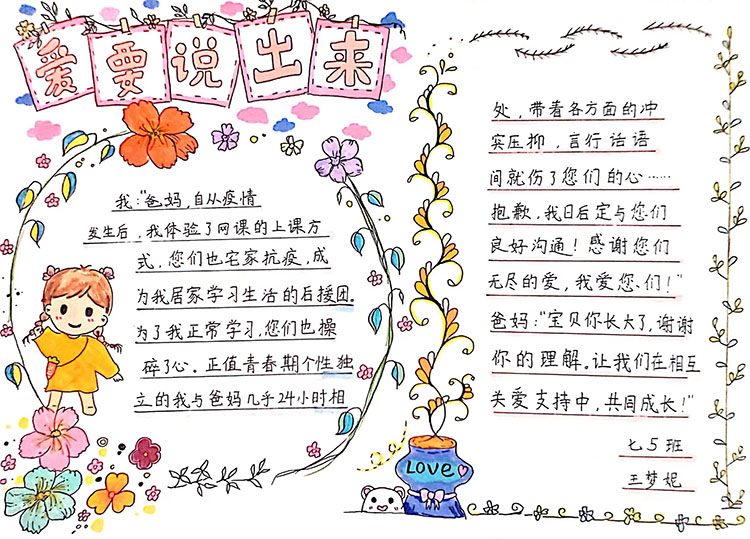 爱要说出来
我:"爸妈,自从疫情
发生后,我体验了网课的上课方
式,您们也宅家抗疫,成
为我居家学习生活的后援团。
为了我正常学习,您们也操
碎了心。正值青春期个性独
立的我与爸妈几乎24小时相
处,带着各方面的冲
突压抑,言行话语
间就伤了您们的心……
抱歉,我日后定与您们
良好沟通!感谢您们
无尽的爱,我爱您们!"
爸妈:"宝贝你长大了,谢谢
你的理解。让我们在相互
关爱支持中,共同成长!"
七5班
王梦妮
LOVE